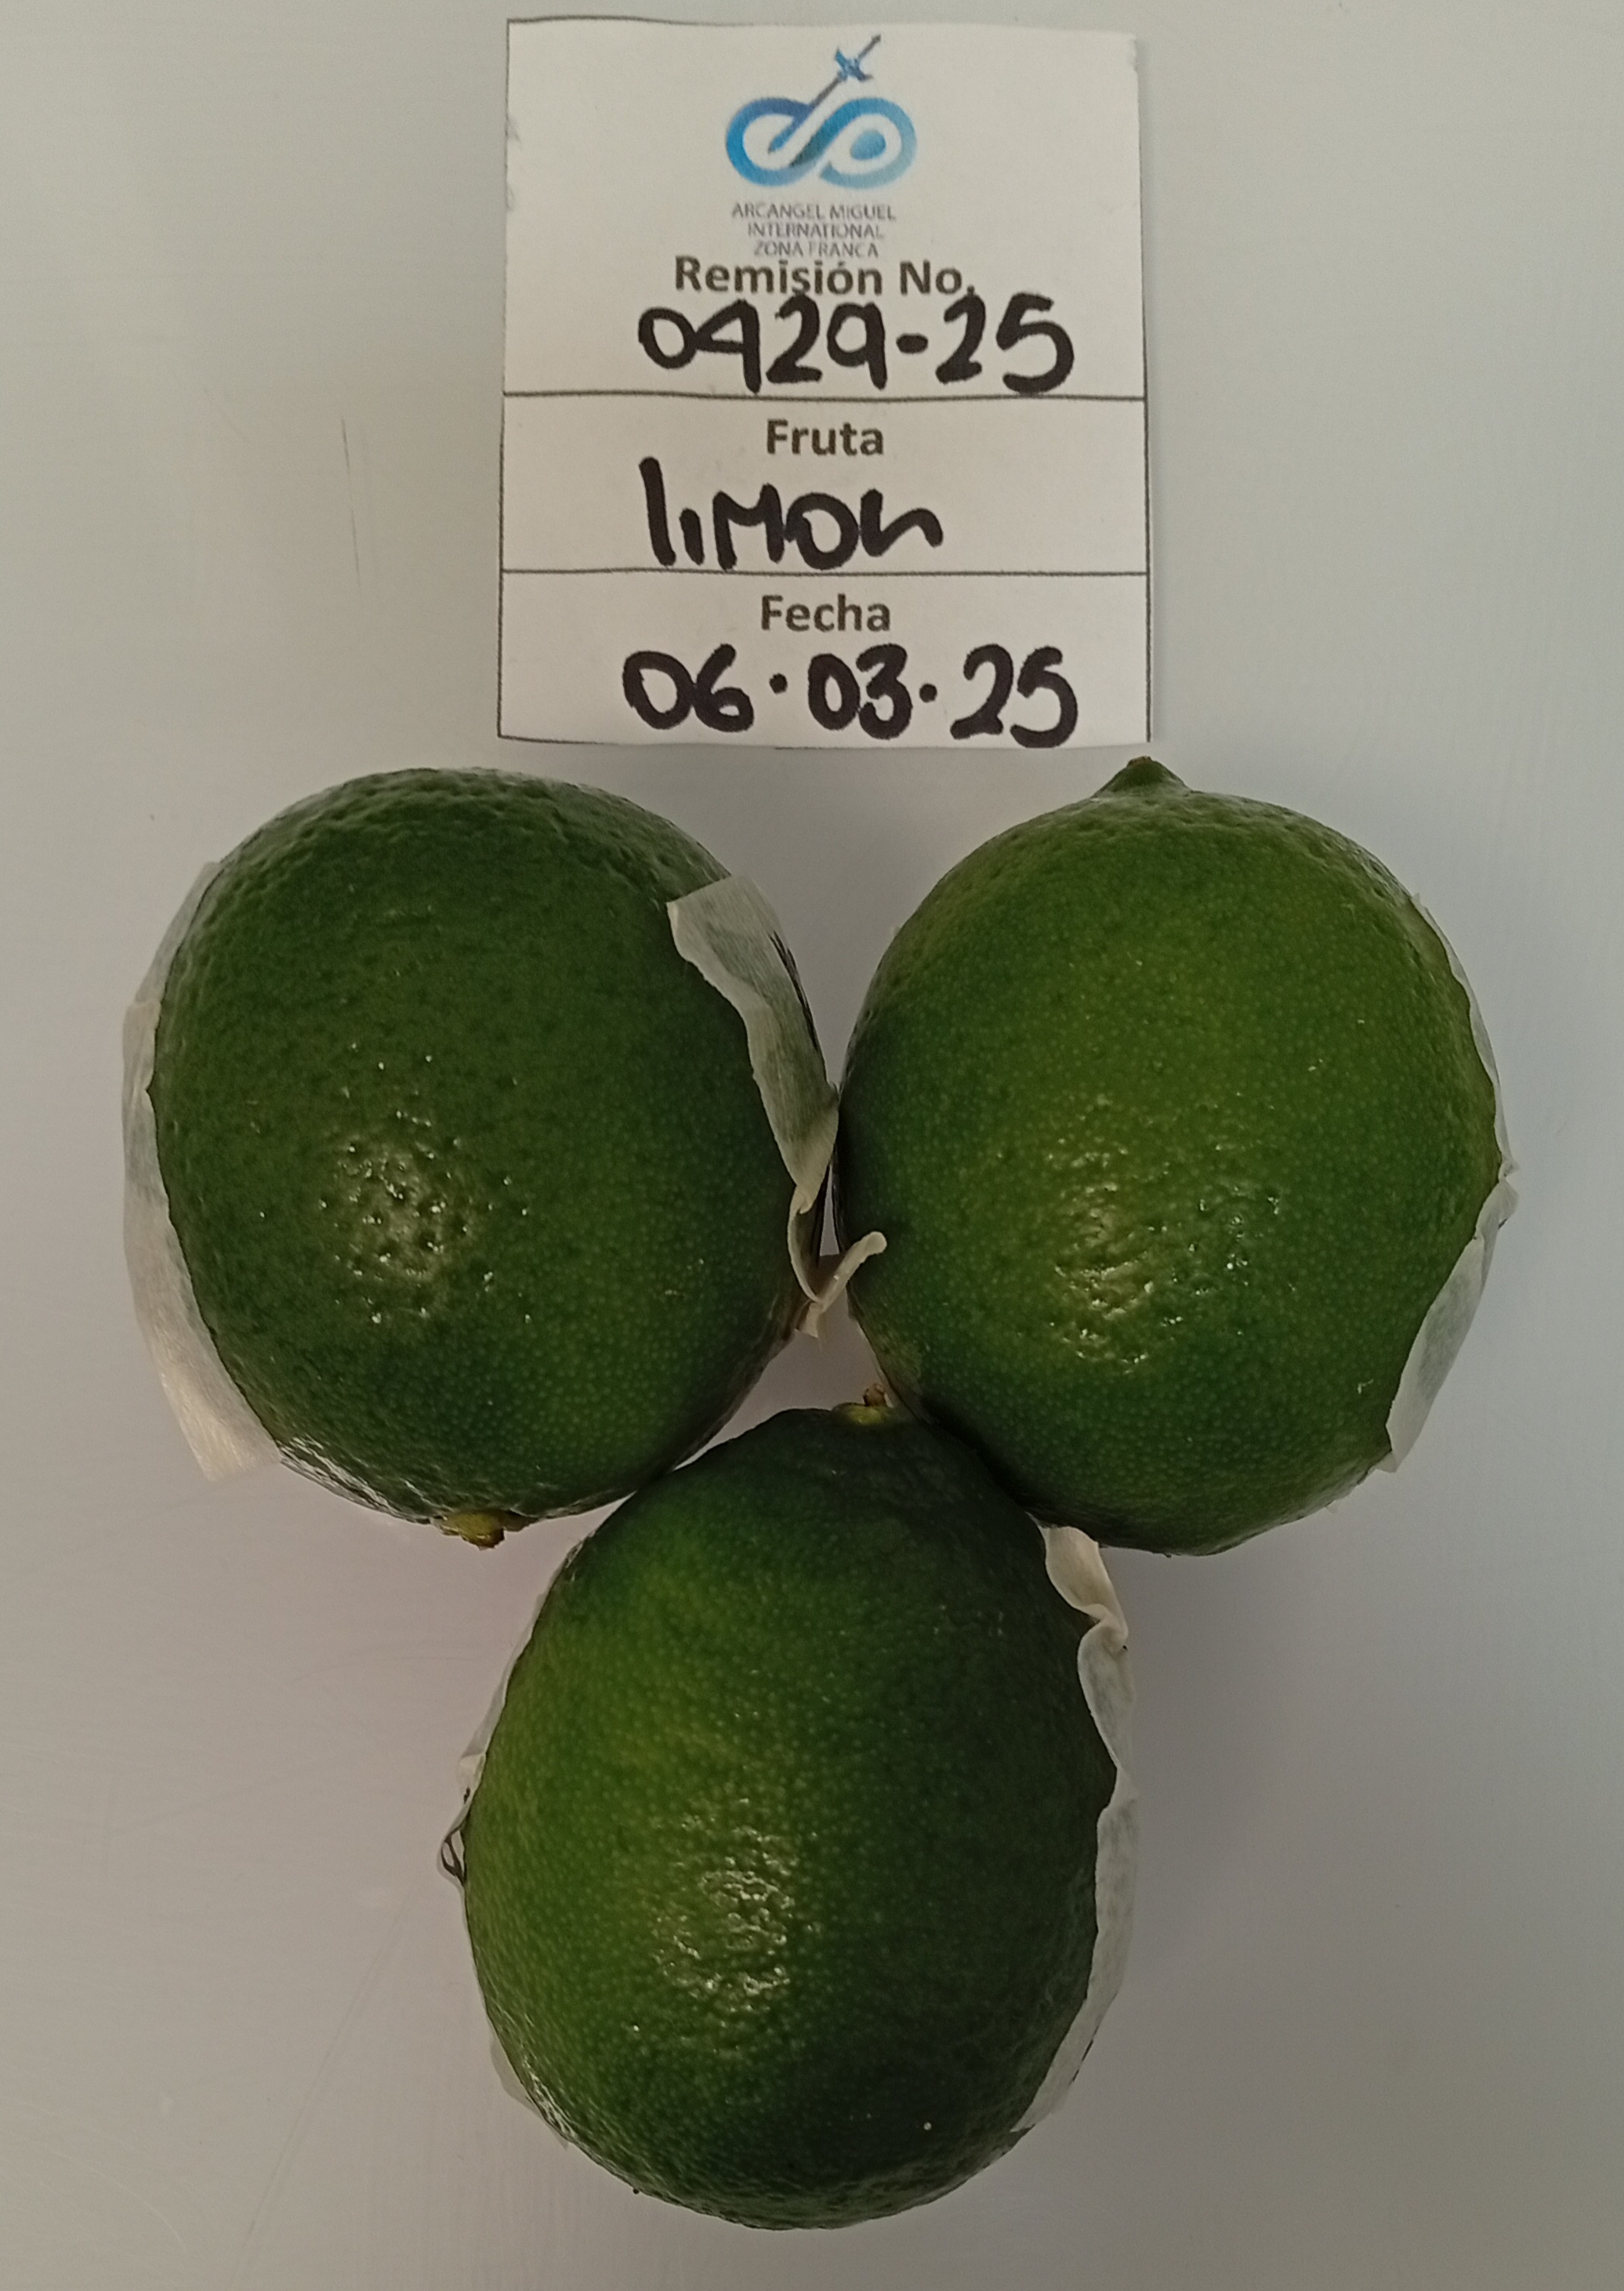 ARCANGEL MIGUEL
INTERNATIONAL
ZONA FRANCA
Remisión No.
0429-25
Fruta
limon
Fecha
06.03.25